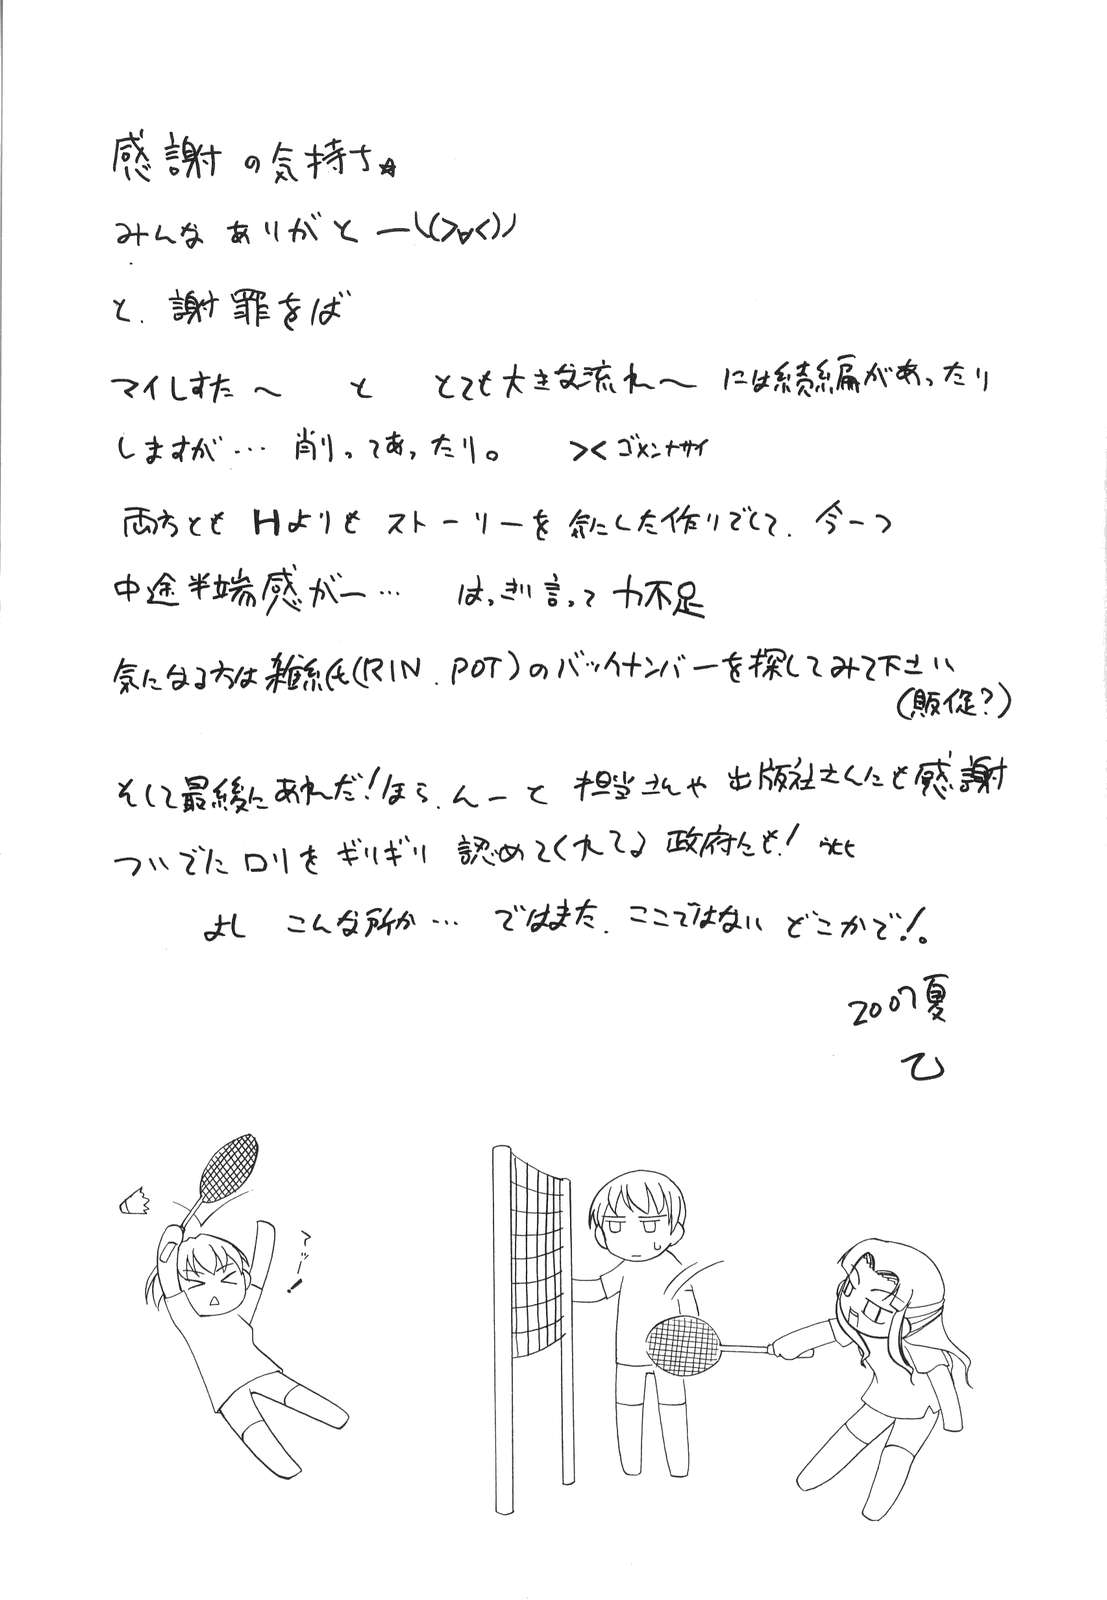 感謝の気持ち☆
みんな ありがとー\(>∀<)ノ
と、謝罪をば
マイしすた〜 と とても大きな流れ〜 には続編があったり
しますが… 削ってあったり。 >< ゴメンナサイ
両方とも Hよりも ストーリーを 気にした作りでして、今一つ
中途半端感がー… はっきり言って 力不足
気になる方は雑紙(RIN、POT)のバックナンバーを探してみて下さい
(販促?)
そして最後にあれだ!ほら、んーと 担当さんや 出版社さんにも感謝
ついでにロリを ギリギリ 認めてくれてる 政府にも!
よし こんな所か… ではまた、ここではない どこかで!。
2007夏
乙
てぃー!